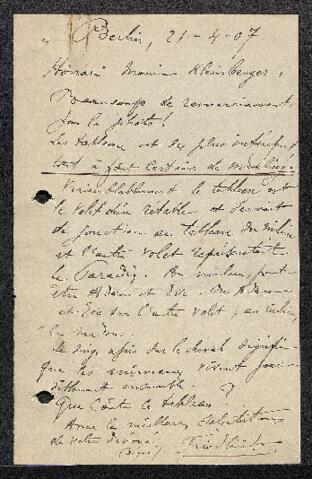 Berlin, 21-4-07
Honoré Monsieur Kleinberger,
Beaucoup de remerciements
pour la photo!
Les tableau est des plus intéressant
et à fait certain de
Vraisemblablement le tableau est
le volet d'un rétable et servait
de jonction au tableau du milieu
et l'autre volet représentait
le Paradis. Au milieu, peut-
être Adam et Eve. Ou Adam
et Eve sur l'autre volet; au milieu,
Le singe assis sur le cheval signifie
que les animaux vivent
ensemble.
Que coûte le tableau?
Avec les meilleures salutations
de votre dévoué
(signé) Friedländer